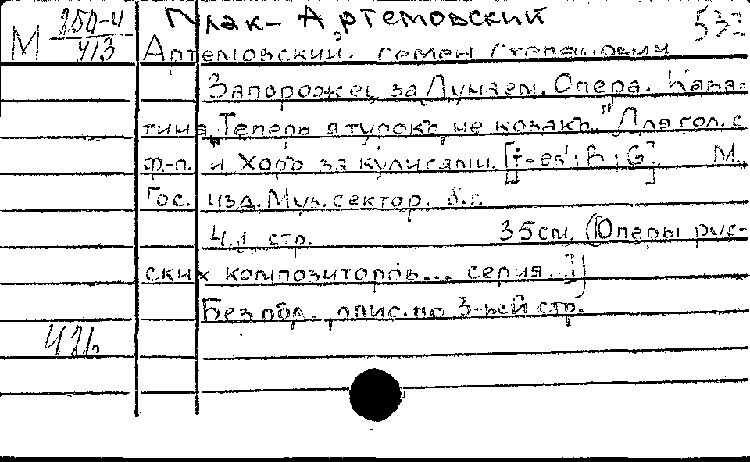 М 250-4/413
Гулак-Артемовский 533
Артемовский, Семен Степанович
Запорожец за Дунаем. Опера. Кава-
тина „Теперь я турокъ, не козакъ." Для гол. с
ф-п. и Хоръ за кулисами. М.
Гос. изд. Муз. сектор. б.г.
4 л. стр. 35см. (Оперы рус-
ских композиторов... серия. I)
Без обл., опис. по 3-ьей стр.